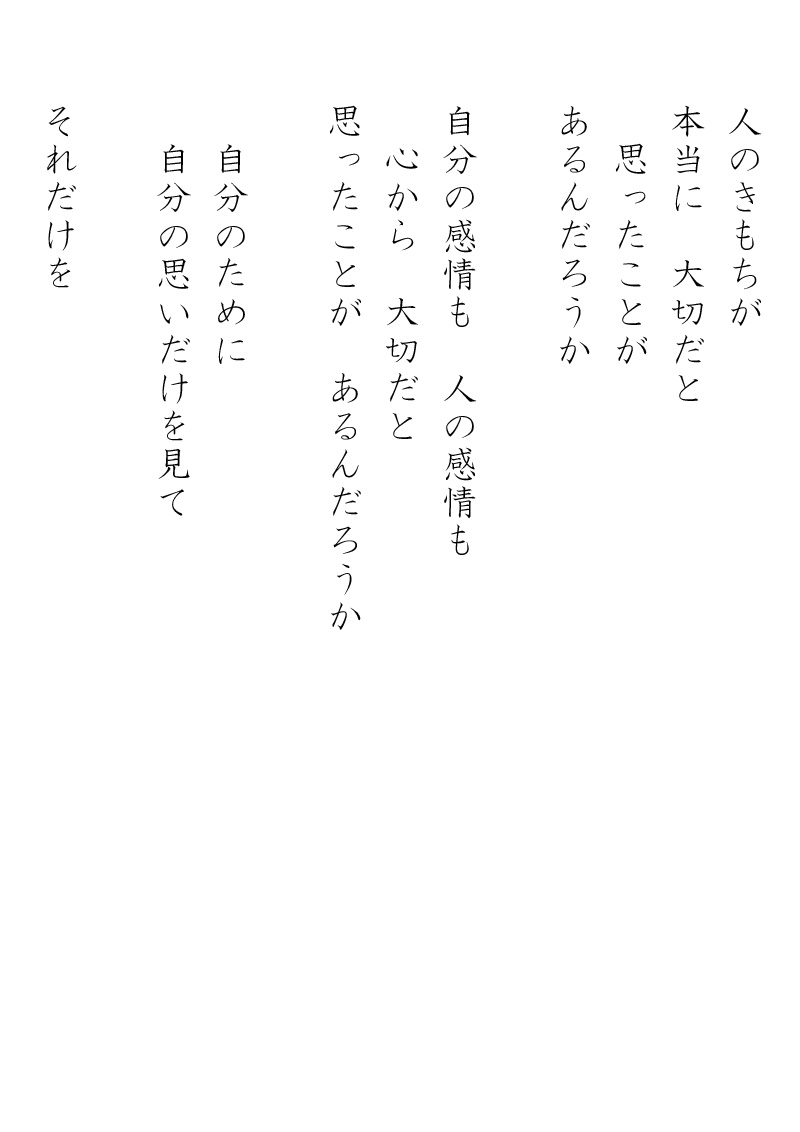 人のきもちが
本当に　大切だと
　思ったことが
あるんだろうか
自分の感情も　人の感情も
　心から　大切だと
思ったことが　あるんだろうか
　自分のために
　自分の思いだけを見て
それだけを